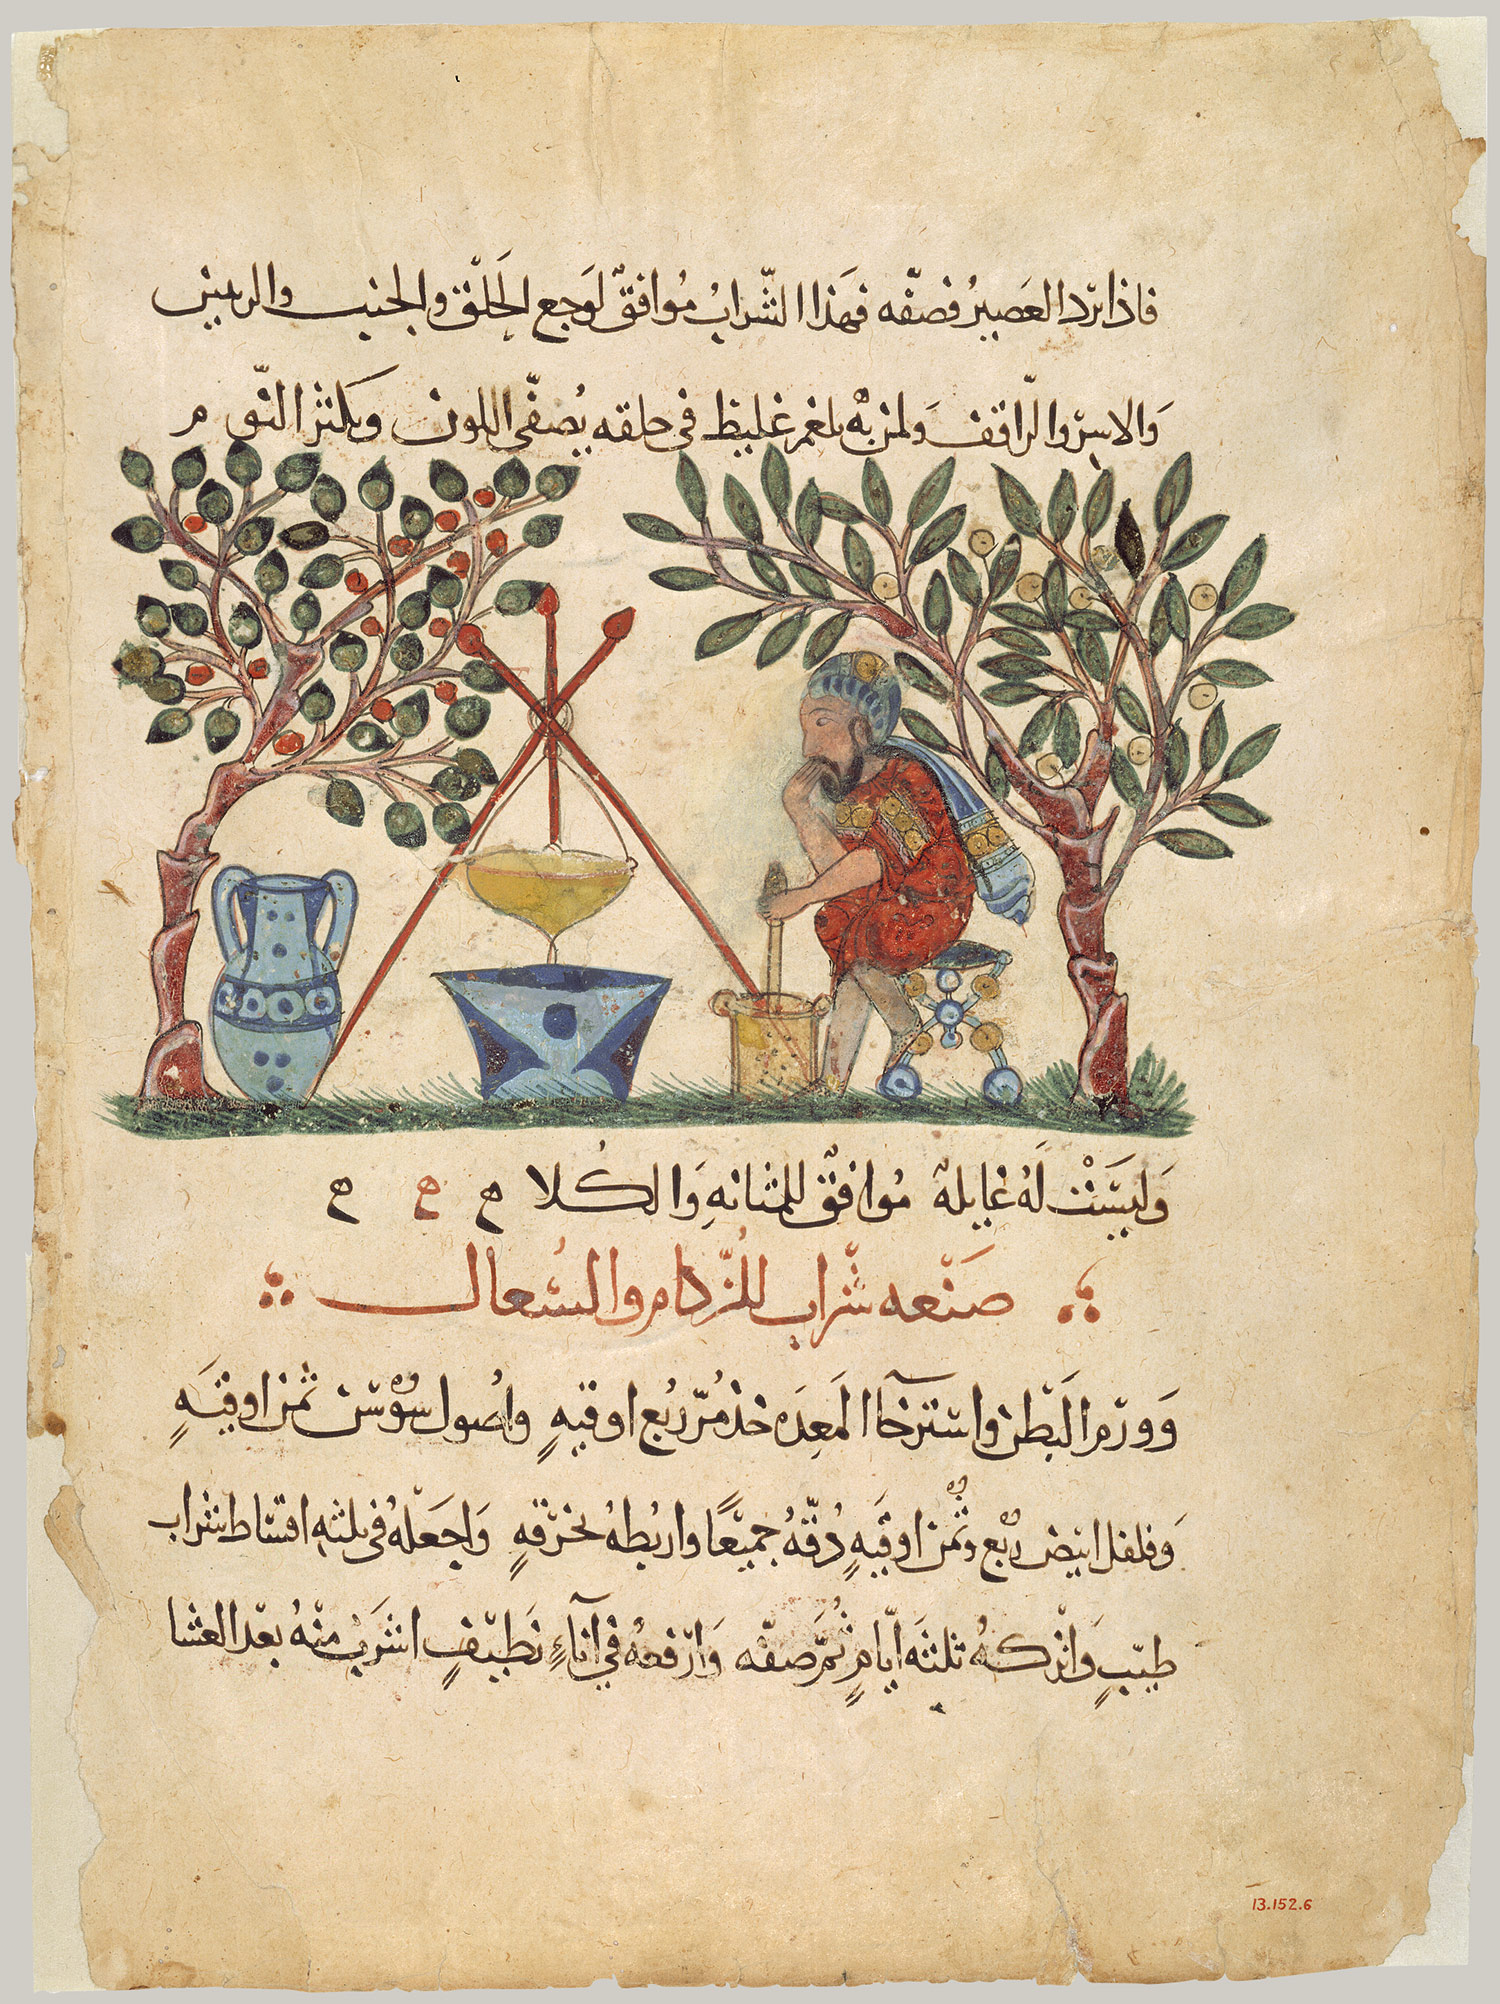 فاذا برد العَصيرُ فصفّه فهَذا الشّرابُ مُوافقٌ لوَجع الحَلْق والجنب والريين
وَلمن به بلغم غليظ في حلقه يُصفّى اللون ويكثر النّوم
وَليسَتْ لَهُ غايلة مُوافقٌ للمثانهِ وَالكُلا ح ح ح
صَنْعه شَّراب للزُّكام والسُّعال
وَورم البَطْن واسْترخآ المَعِدَه خذ مُرّ رُبع اوقيهٍ واصُول سُوْسَن ثمن اوقيَهٍ
وَفلفل ابيَض رُبع وثُمْن اوقيَهٍ دُقّهُ جميْعًا واربُطهُ بخرْقهٍ وَاجعَلهُ في ثلثه اقساط شراب
طيّبٍ وَاتركهُ ثلثَه ايّامٍ ثمَّ صفّه وَارْفعهُ في آناءٍ نَظيفٍ اشرَبْ منْهُ بعْد العشا
13.152.6